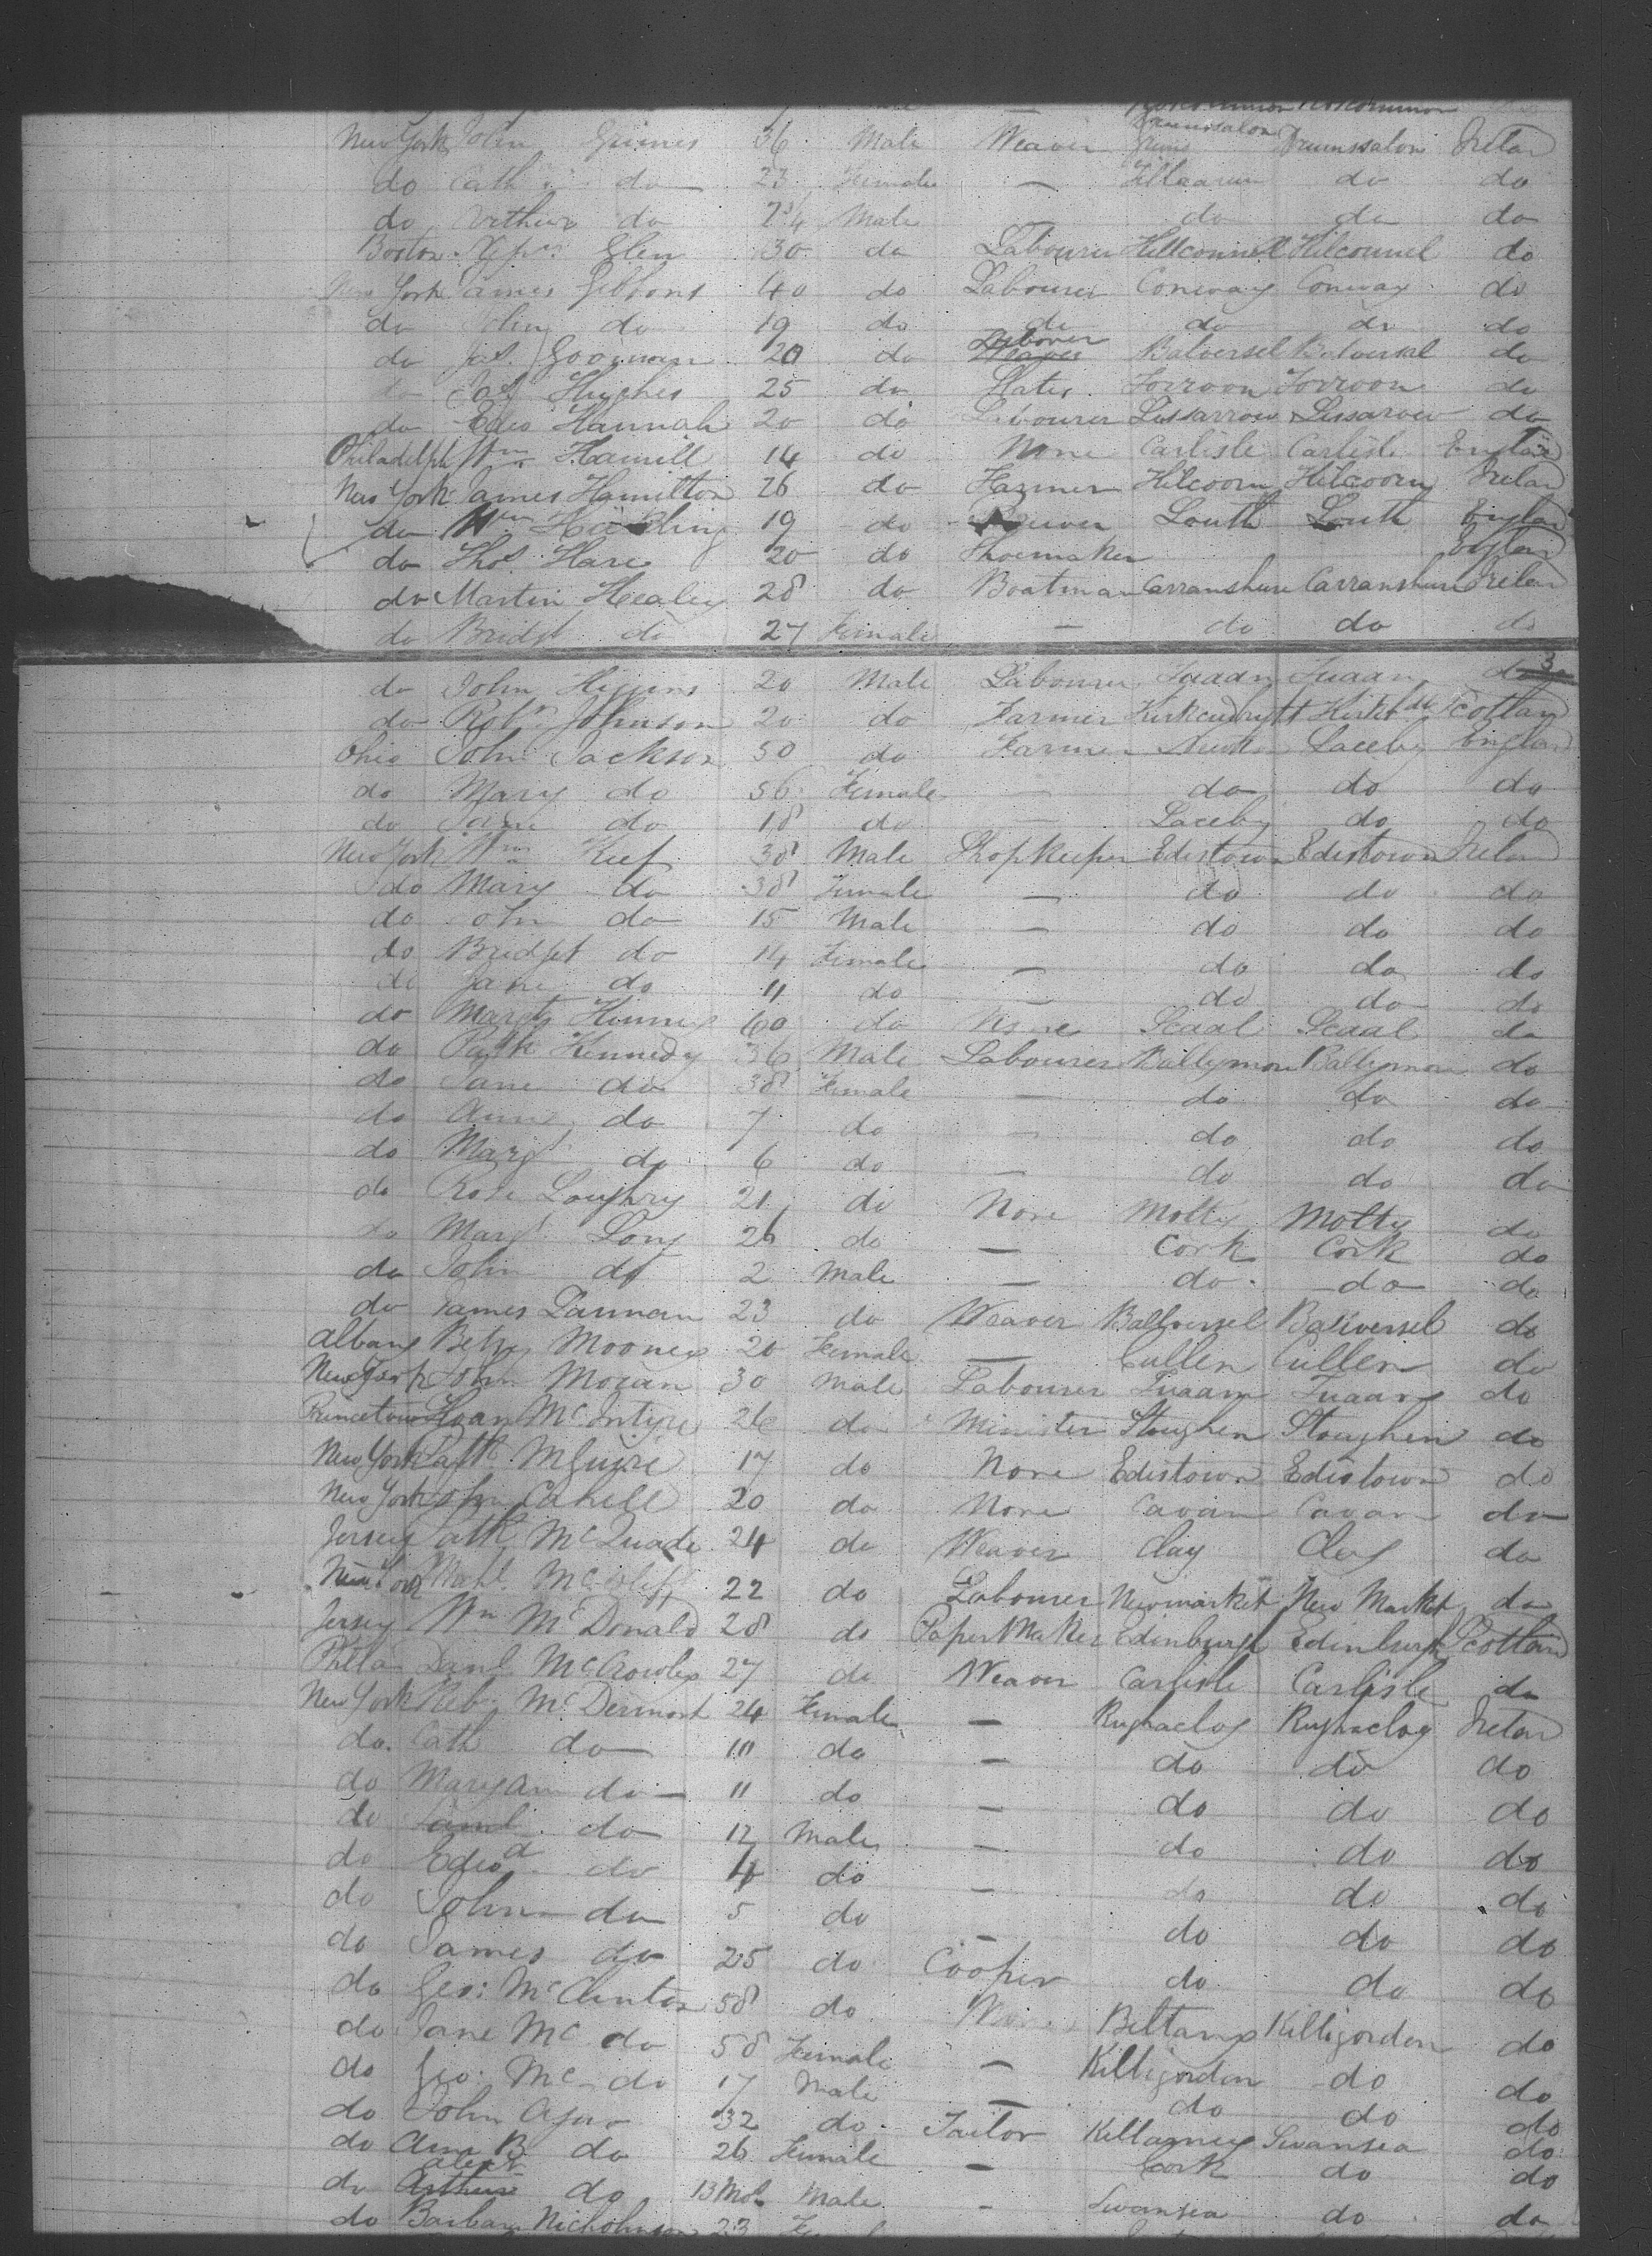 New York John Grimes 36 Male Weaver Drumsalon Ireland
do Cath do 23 Female — do do
do Arthur do 2 3/4 Male do do do
Boston Glen 30 do Labourer Killconnell Kilconnel do
New York James Gibbons 40 do Labourer Conway Conway do
do John do 19 do do do do do
do Jas. 20 do Labourer do
do Hughes 25 do Slater Torroon Torroon do
do Edw Hannah 20 do Labourer Lissarrow Lissarow do
Philadelph Wm Hamill 14 do None Carlisle Carlisle England
New York James Hamilton 26 do Farmer Kilcoorn Kilcoorn Ireland
do Wm 19 do Louth Louth England
do Thos. Hare 20 do Shoemaker England
do Martin Healey 28 do Boatman Carranshure Carranshure Ireland
do Bridgt do 27 Female — do do do
do John Higgins 20 Male Labourer Tuaam Tuaam do
do Robt Johnson 20 do Farmer Scotland
Ohio John Jackson 50 do Farmer Laceby England
do Mary do 56 Female — do do do
do Jane do 18 do — Laceby do do
New York Wm Keef 38 Male Shopkeeper Edistown Edistown Ireland
do Mary do 38 Female — do do do
do John do 15 Male — do do do
do Bridget do 14 Female — do do do
do Jane do 11 do — do do do
do Margt 60 do None Scaal Scaal do
do Patk Kennedy 36 Male Labourer Ballymore Ballymore do
do Jane do 38 Female — do do do
do Ann do 7 do — do do do
do Margt do 6 do — do do do
do Rose Loughry 21 do None Motty Motty do
do Margt Long 26 do — Cork Cork do
do John do 2 Male — do do do
do James Lannan 23 do Weaver do
Albany Betsy Mooney 20 Female — Cullen Cullen do
New York John Moran 30 Male Labourer Tuaam Tuaam do
Princetown McIntyre 26 do Minister Stoughen Stoughen do
New York Patk McGuire 17 do None Edistown Edistown do
New York John Cahell 20 do None Cavan Cavan do
Jersey Patk McQuade 24 do Weaver Clay Clay do
New York 22 do Labourer Newmarket New Market do
Jersey Wm McDonald 28 do Paper Maker Edinburgh Edinburgh Scotland
Phila Danl McCrowley 27 do Weaver Carlisle Carlisle do
New York Reb: McDermont 24 Female — Rughaclog Rughaclog Ireland
do Cath do 10 do — do do do
do Maryann do 11 do — do do do
do Saml do 12 Male — do do do
do Edwd do 4 do — do do do
do John do 5 do — do do do
do James do 25 do Cooper do do do
do Geo: McClinton 58 do None Beltany Killigordon do
do Jane Mc do 58 Female — Killigordon do do
do Geo: Mc do 17 Male — do do do
do John 32 do Tailor Killarney Swansea do
do Ann B do 26 Female — Cork do do
do Alexr do 13 Mos Male - Swansea do do
do Barbara Nicholson 23